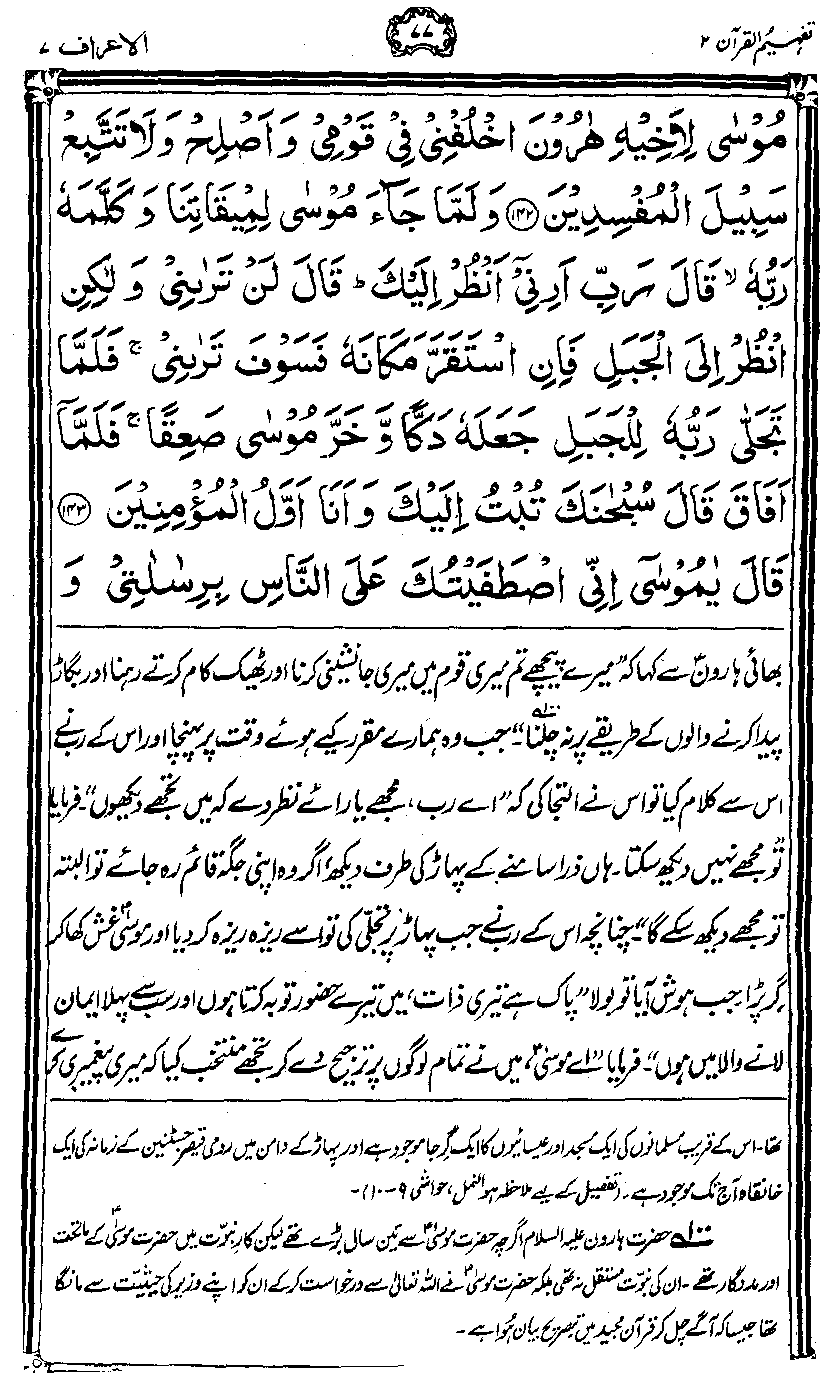 تفہیم القرآن ۲
۷۷
الاعراف ۷
مُوْسٰى لِاَخِيْهِ هٰرُوْنَ اخْلُفْنِيْ فِيْ قَوْمِيْ وَاَصْلِحْ وَلَا تَتَّبِعْ
سَبِيْلَ الْمُفْسِدِيْنَ ﴿۱۴۲﴾ وَلَمَّا جَآءَ مُوْسٰى لِمِيْقَاتِنَا وَكَلَّمَهٗ
رَبُّهٗ ۙ قَالَ رَبِّ اَرِنِيْٓ اَنْظُرْ اِلَيْكَ ؕ قَالَ لَنْ تَرٰىنِيْ وَلٰكِنِ
انْظُرْ اِلَى الْجَبَلِ فَاِنِ اسْتَقَرَّ مَكَانَهٗ فَسَوْفَ تَرٰىنِيْ ۚ فَلَمَّا
تَجَلّٰى رَبُّهٗ لِلْجَبَلِ جَعَلَهٗ دَكًّا وَّخَرَّ مُوْسٰى صَعِقًا ۚ فَلَمَّآ
اَفَاقَ قَالَ سُبْحٰنَكَ تُبْتُ اِلَيْكَ وَاَنَا اَوَّلُ الْمُؤْمِنِيْنَ ﴿۱۴۳﴾
قَالَ يٰمُوْسٰٓى اِنِّي اصْطَفَيْتُكَ عَلَى النَّاسِ بِرِسٰلٰتِيْ وَ
بھائی ہارونؑ سے کہا کہ ”میرے پیچھے تم میری قوم میں میری جانشینی کرنا اور ٹھیک کام کرتے رہنا اور بگاڑ
پیدا کرنے والوں کے طریقے پر نہ چلنا“۔ جب وہ ہمارے مقرر کیے ہوئے وقت پر پہنچا اور اس کے رب نے
اس سے کلام کیا تو اس نے التجا کی کہ ”اے رب، مجھے یارائے نظر دے کہ میں تجھے دیکھوں“۔ فرمایا
”تُو مجھے نہیں دیکھ سکتا۔ ہاں ذرا سامنے کے پہاڑ کی طرف دیکھ، اگر وہ اپنی جگہ قائم رہ جائے تو البتہ
تو مجھے دیکھ سکے گا“۔ چنانچہ اس کے رب نے جب پہاڑ پر تجلی کی تو اسے ریزہ ریزہ کر دیا اور موسیٰؑ غش کھا کر
گر پڑا۔ جب ہوش آیا تو بولا ”پاک ہے تیری ذات، میں تیرے حضور توبہ کرتا ہوں اور سب سے پہلا ایمان
لانے والا میں ہوں“۔ فرمایا ”اے موسیٰؑ، میں نے تمام لوگوں پر ترجیح دے کر تجھے منتخب کیا کہ میری پیغمبری کرے
تھا۔ اس کے قریب مسلمانوں کی ایک مسجد اور عیسائیوں کا ایک گرجا موجود ہے اور پہاڑ کے دامن میں رومی قیصر جسٹنین کے زمانہ کی ایک
خانقاہ آج تک موجود ہے۔ (تفصیل کے لیے ملاحظہ ہو النمل، حواشی ۹-۱۰)۔
۱۰۰؎ حضرت ہارون علیہ السلام اگرچہ حضرت موسیٰؑ سے تین سال بڑے تھے لیکن کارِ نبوت میں حضرت موسیٰؑ کے ماتحت
اور مددگار تھے۔ ان کی نبوت مستقل نہ تھی بلکہ حضرت موسیٰؑ نے اللہ تعالیٰ سے درخواست کر کے ان کو اپنے وزیر کی حیثیت سے مانگا
تھا جیسا کہ آگے چل کر قرآن مجید میں بتصریح بیان ہُوا ہے۔